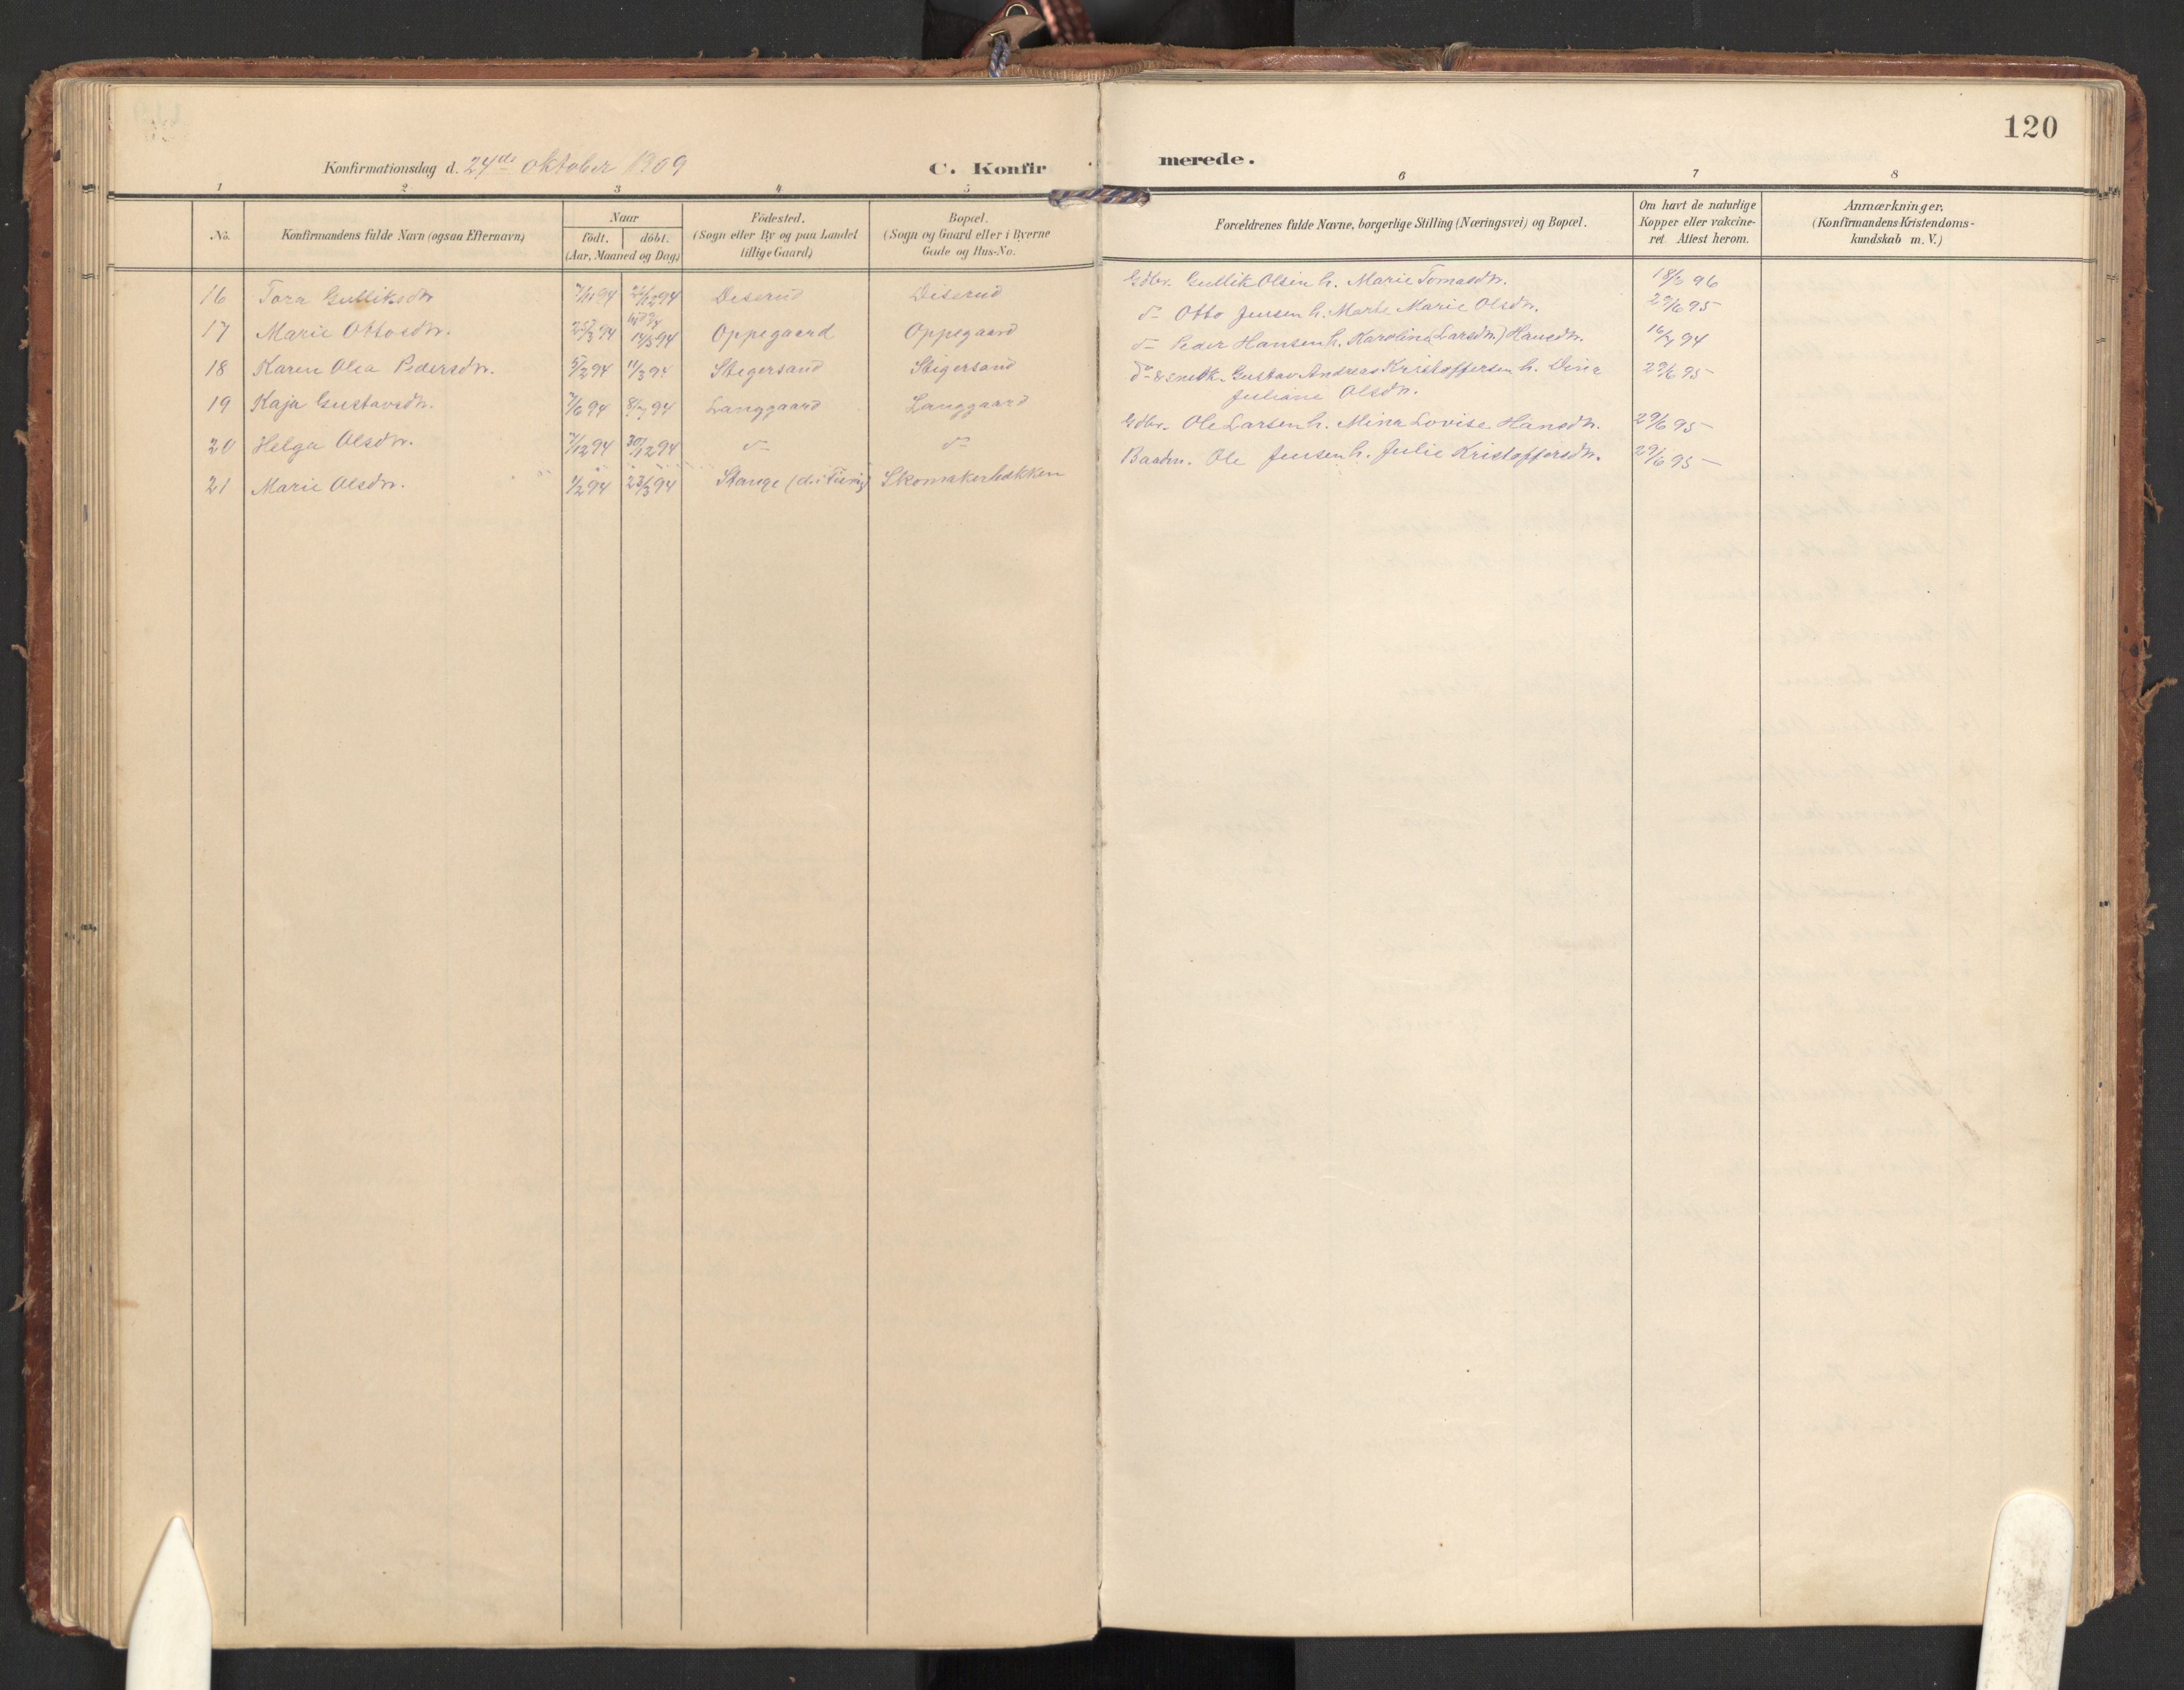 120
Konfirmationsdag d. 24de oktober 1909
C. Konfirmerede.
1 2 3 4 5 6 7 8
No. Konfirmandens fulde Navn (ogsaa Efternavn) Naar födt. döbt. (Aar, Maaned og Dag) Födested. (Sogn eller By og paa Landet tillige Gaard) Bopæl. (Sogn og Gaard eller i Byerne Gade og Hus-No. Forældrenes fulde Navne, borgerlige Stilling (Næringsvei) og Bopæl. Om havt de naturlige Kopper eller vakcineret. Attest herom. Anmærkninger. (Konfirmandens Kristendomskundskab m. V.)
16 Tora Gulliksdn. 12 94 Diserud Diserud Gdbr. Gullik Olsen h. Marie Tomasdn. 96
17 Marie Ottosdn. 25/3 94 14/5 94 Oppegaard Oppegaard do Otto Jensen h. Marte Marie Olsdn. 29/6 95
18 Karen Olea Pedersdn. 5/2 94 11/3 94 Stegersand Stigersand do Peder Hansen h. Karoline (Larsdn.) Hansdn. 94
19 Kaja Gustavsdn. 7/6 94 8/7 94 Langgaard Langgaard do & snedk. Gustav Andreas Kristoffersen h. Dina 29/6 95
Juliane Olsdn.
20 Helga Olsdn. 7/12 94 30/12 94 do do Gdbr. Ole Larsen h. Mina Lovise Hansdn. 29/6 95
21 Marie Olsdn. 1/2 94 23/3 94 Stange Skomakerbakken Baadm. Ole Jensen h. Julie Kristoffersdn. 29/6 95